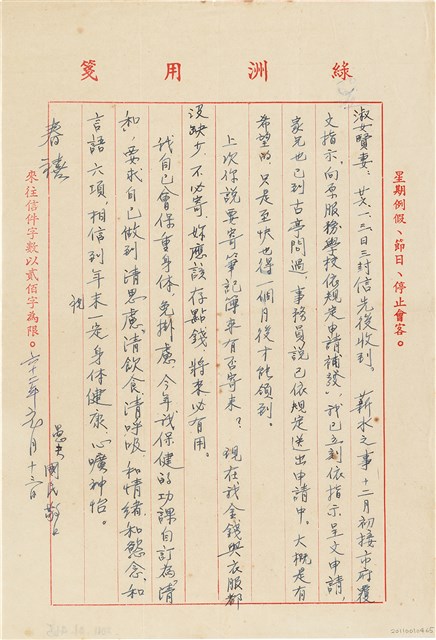 綠洲用箋
星期例假、節日、停止會客。
淑女賢妻：廿八、一、三日三封信先後收到。薪水之事十二月初接市府覆
文指示，向原服務學校依規定申請補發，我已立刻依指示呈文申請，
家兄也已到古亭問過，事務員說已依規定送出申請中。大概是有
希望的，只是至快也得一個月後才能領到。
上次你說要寄筆記簿來有否寄來？現在我金錢與衣服都
沒缺少，不必寄，妳應該存點錢將來必有用。
我自己會保重身体，免掛慮，今年我保健的功課自訂為清
和，要求自己做到清思慮、清飲食、清呼吸，和情緒、和慾念、和
言語六項，相信到年末一定身体健康，心曠神怡。
祝
春禧
愚夫國民敬上
六十二年元月十三日
來往信件字數以貳佰字為限。